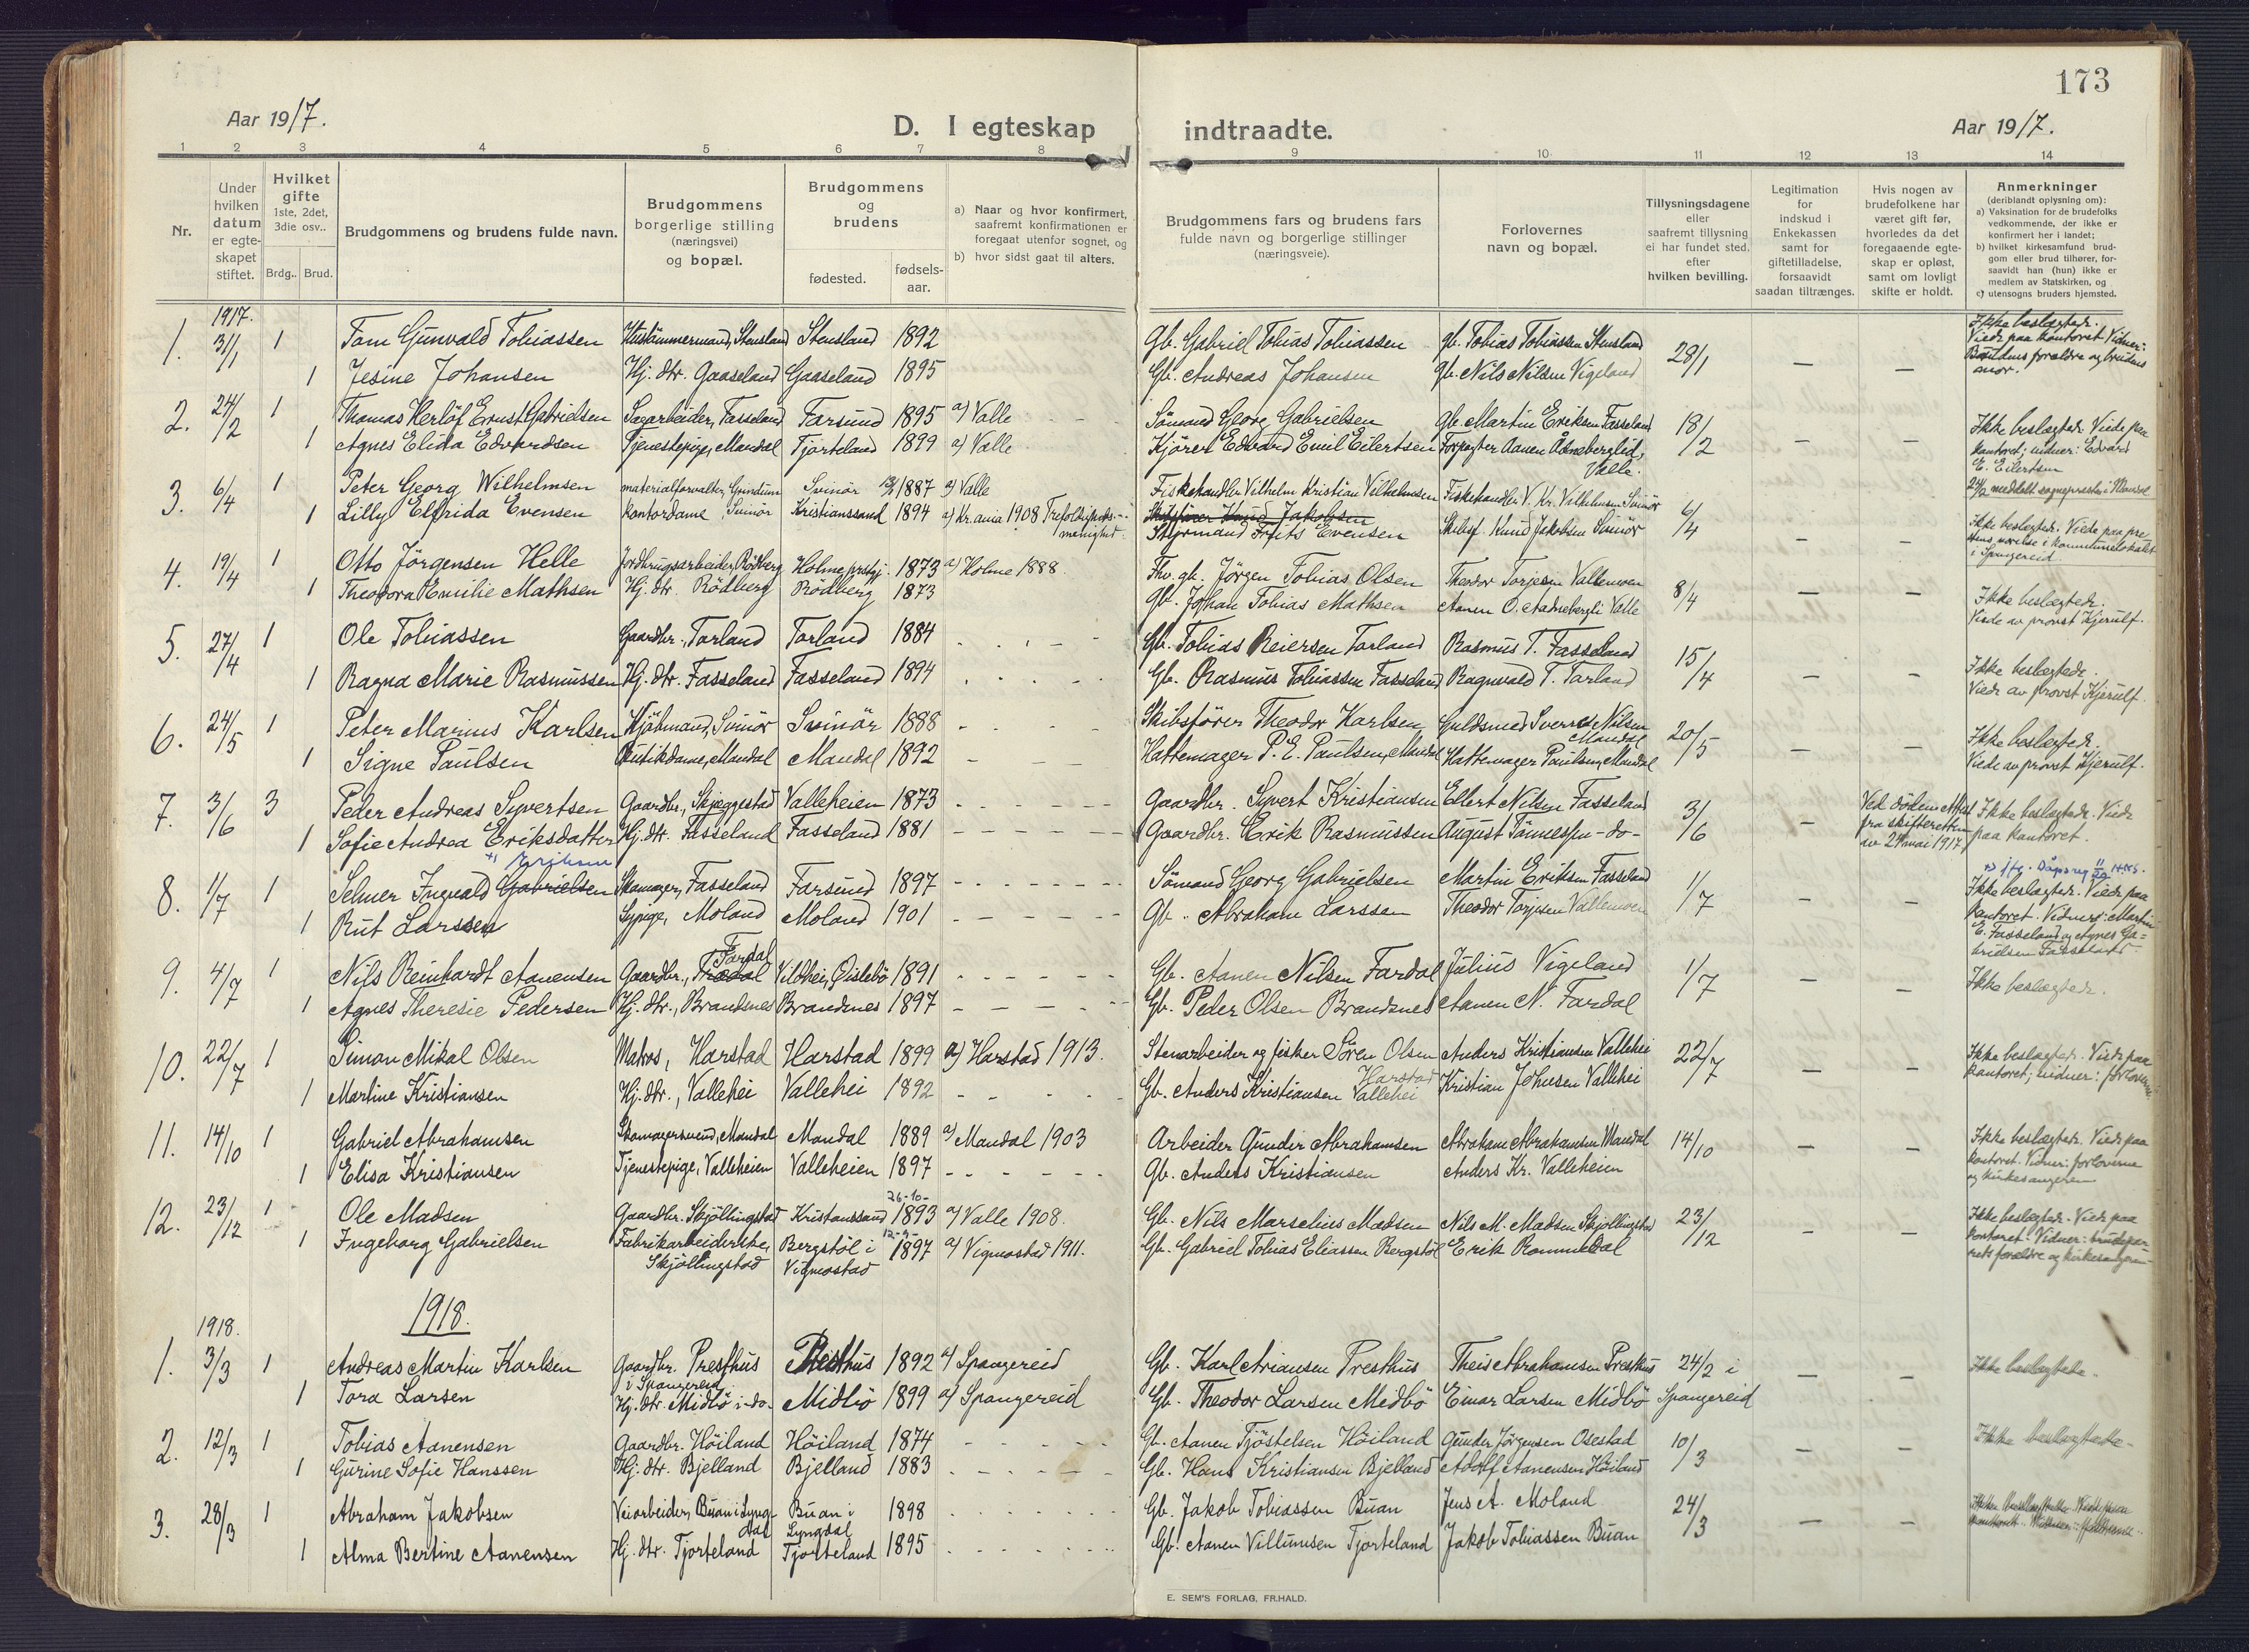 173
Aar 1917.
D. I egteskap indtraadte.
Aar 1917.
1 2 3 4 5 6 7 8 9 10. 11 12 13 14
Nr.
Under hvilken datum er egte-skapet stiftet.
Hvilket gifte 1ste, 2det, 3die osv..
Brdg.. Brud.
Brudgommens og brudens fulde navn.
Brudgommens borgerlige stilling (næringsvei) og bopæl.
Brudgommens og brudens
fødested.
fødsels-aar.
a) Naar og hvor konfirmert, saafremt konfirmationen er foregaat utenfor sognet, og
b) hvor sidst gaat til alters.
Brudgommens fars og brudens fars fulde navn og borgerlige stillinger (næringsveie).
Forlovernes navn og bopæl.
Tillysningsdagene eller saafremt tillysning ei har fundet sted. efter hvilken bevilling.
Legitimation for indskud i Enkekassen samt for giftetilladelse, forsaavidt saadan tiltrænges.
Hvis nogen av brudefolkene har været gift før, hvorledes da det foregaaende egte-skap er opløst, samt om lovligt skifte er holdt.
Anmerkninger (deriblandt oplysning om):
a) Vaksination for de brudefolks vedkommende, der ikke er konfirmert her i landet;
b) hvilket kirkesamfund brud-gom eller brud tilhører, for-saavidt han (hun) ikke er medlem av Statskirken, og
c) utensogns bruders hjemsted.
1917.
1. 3/1 1 Tom Gunvald Tobiassen Hustømmermand, Stensland Stensland 1892 Gb. Gabriel Tobias Tobiassen gb. Tobias Tobiassen Stensland 28/1 — — Ikke beslegtede. Viede paa kontoret Vidner: forældre og brudens mor.
1 Jesine Johansen Hj. dtr. Gaaseland Gaaseland 1895 Gb. Andreas Johansen gb. Nils Nilsen Vigeland
2. 24/2 1 Thomas Herlöf Ernst Gabrielsen Sagarbeider, Fasseland Farsund 1895 a) Valle Sömand Georg Gabrielsen Gb. Martin Eriksen Fasseland 18/2 — — Ikke beslegtede. Viede paa kontoret; vidner: Edvard E. Eilertsen
1 Agnes Elida Edvardsen Tjenestepige, Mandal Tjorteland 1899 a) Valle Kjörer Edvard Emil Eilertsen Forpagter Aanen Valle.
3. 6/4 1 Peter Georg Wilhelmsen materialforvalter, Grindum Svinör 1887 a) Valle Fiskehandler Vilhelm Kristian Vilhelmsen Fiskehandler V. Kr. Vilhelmsen Svinör 6/4 — — 24/2 meddelt sognepresten i Mandal Ikke beslegtede. Viede paa i kommunelokalet i Spangereid.
1 Lilly Elfrida Evensen kontordame, Svinör Kristianssand 1894 a) Kr.ania 1908 Trefoldigheds-menighed. Skibsförer Knud Jakobsen Styrmand Frits Evensen Skibsf. Knud Jakobsen Svinör
4. 19/4 1 Otto Jörgensen Helle Jordbrugsarbeider, Rödberg Holme prestgj. 1873 a) Holme 1888. Fhv. gb. Jörgen Tobias Olsen Theodor Torjesen Vallemoen 8/4 — — Ikke beslegtede. Viede av provst Kjerulf.
1 Theodora Emilie Mathsen Hj. dtr. Rödberg Rödberg 1873 Gb. Johan Tobias Mathsen Aanen O. Aadnebergli Valle
5. 27/4 1 Ole Tobiassen Gaardbr., Tarland Tarland 1884 Gb. Tobias Reiersen Tarland Rasmus T. Fasseland 15/4 — — Ikke beslegtede. Viede av provst Kjerulf.
1 Ragna Marie Rasmussen Hj. dtr. Fasseland Fasseland 1894 Gb. Rasmus Tobiassen Fasseland Ragnvald T. Tarland
6. 24/5 1 Peter Marius Karlsen Kjöbmand, Svinör Svinör 1888 Skibsförer Theodor Karlsen Guldsmed Sverre Nilsen Mandal 20/5 — — Ikke beslegtede. Viede av provst Kjerulf.
1 Signe Paulsen Butikdame, Mandal Mandal 1892 Hattemager P. E. Paulsen, Mandal Hattemager Paulsen, Mandal
7. 3/6 3 Peder Andreas Syvertsen Gaardbr., Skjeggestad Valleheien 1873 Gaardbr. Syvert Kristiansen Ellert Nilsen Fasseland 3/6 — Ved döden Attest fra skifteretten av 24 mai 1917 Ikke beslegtede. Viede paa kontoret.
1 Sofie Andrea Eriksdatter Hj. dtr. Fasseland Fasseland 1881 Gaardbr. Erik Rasmussen August Tönnessen -do-
8. 1/7 1 Selmer Ingvald Gabrielsen +) Eriksen Skomager, Fasseland Farsund 1897 Sömand Georg Gabrielsen Martin Eriksen Fasseland 1/7 — — Ikke beslegtede. Viede paa kontoret. Vidner: Martin E. Fasseland og Agnes Ga-brielsen Fasseland.
1 Rut Larssen Sypige, Moland Moland 1901 Gb. Abraham Larssen Theodor Torjesen Vallemoen
9. 4/7 1 Nils Reinhardt Aanensen Gaardbr., Fardal Vildhei, Öislebö 1891 Gb. Aanen Nilsen Fardal Julius Vigeland 1/7 — — Ikke beslegtede.
1 Agnes Theresie Pedersen Hj. dtr., Brandsnes Brandsnes 1897 Gb. Peder Olsen Brandsnes Aanen N. Fardal
10. 22/7 1 Simon Mikal Olsen Matros, Harstad Harstad 1899 a) Harstad 1913. Stenarbeider og fisker Sören Olsen Harstad Anders Kristiansen Vallehei 22/7 — — Ikke beslegtede. Viede paa kontoret; vidner: forloverne.
1 Martine Kristiansen Hj. dtr., Vallehei Vallehei 1892 Gb. Anders Kristiansen Vallehei Kristian Johnsen Vallehei
11. 14/10 1 Gabriel Abrahamsen Skomagersvend, Mandal Mandal 1889 a) Mandal 1903 Arbeider Gunder Abrahamsen Abraham Abrahamsen Mandal 14/10 — — Ikke beslegtede. Viede paa kontoret. Vidner: forloverne og kirkesangeren
1 Elisa Kristiansen Tjenestepige, Valleheien Valleheien 1897 Gb. Anders Kristiansen Anders Kr. Valleheien
12. 23/12 1 Ole Madsen Gaardbr. Skjöllingstad Kristianssand 26-10- 1893 a) Valle 1908. Gb. Nils Marselius Madsen Nils M. Madsen Skjöllingstad 23/12 — — Ikke beslegtede. Viede paa kontoret. Vidner: brudepar-rets forældre og kirkesangeren
1 Ingeborg Gabrielsen Fabrikarbeiderske, Skjöllingstad Bergstöl i Vigmostad 1897 a) Vigmostad 1911. Gb. Gabriel Tobias Eliassen Bergstöl Erik Rommedal
1918.
1918.
1. 3/3 1 Andreas Martin Karlsen Gaardbr. Presthus i Spangereid Presthus 1892 a) Spangereid Gb. Karl Ariansen Presthus Theis Abrahamsen Presthus 24/2 i Spangereid — — Ikke beslegtede.
1 Tora Larsen Hj. dtr. Midbö i -do- Midbö 1899 a) Spangereid Gb. Theodor Larsen Medbö Einar Larsen Midbö
2. 12/3 1 Tobias Aanensen Gaardbr. Höiland Höiland 1874 Gb. Aanen Tjöstelsen Höiland Gunder Jörgensen Osestad 10/3 — — Ikke beslegtede.
1 Gurine Sofie Hanssen Hj. dtr. Bjelland Bjelland 1883 Gb. Hans Kristiansen Bjelland Adolf Aanensen Höiland
3. 28/3 1 Abraham Jakobsen Veiarbeider, Buan i Lyng-dal Buan i Lyngdal 1898 Gb. Jakob Tobiassen Buan Jens A. Moland 24/3 — — Ikke beslegtede. Viede paa kontoret.
1 Alma Bertine Aanensen Hj. dtr. Tjorteland Tjorteland 1895 Gb. Aanen Villumsen Tjorteland Jakob Tobiassen Buan
E. SEM'S FORLAG, FR.HALD.